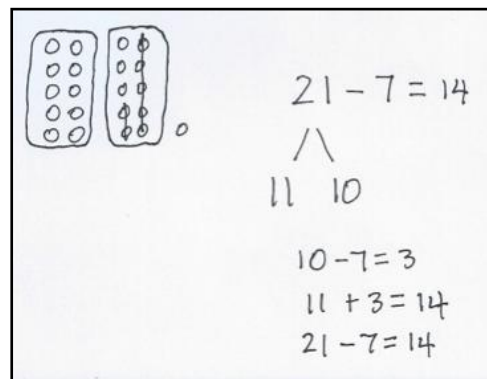 21 - 7 = 14
11 10
10 - 7 = 3
11 + 3 = 14
21 - 7 = 14